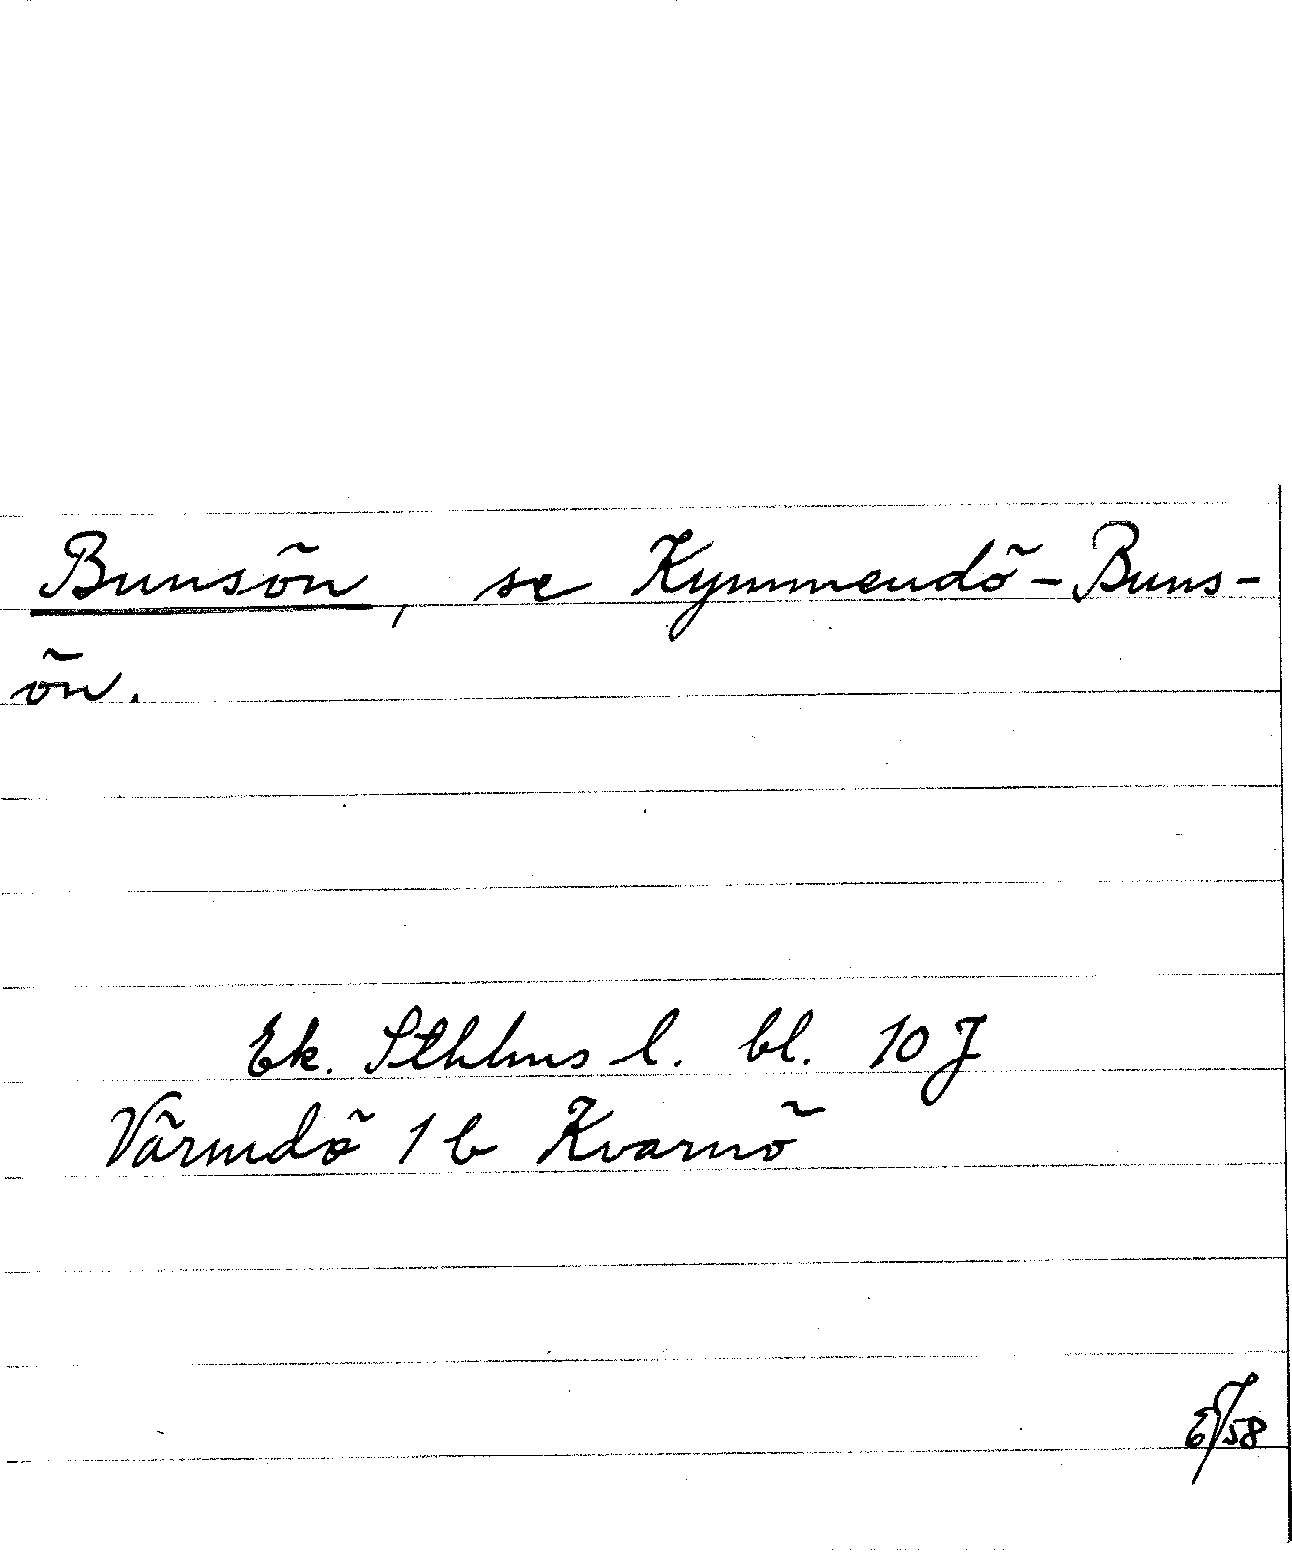 Bunsön, se Kymmendö-Buns-
ön.
Ek. Sthlms l. bl. 10 J
Värmdö 1 b Kvarnö
/58